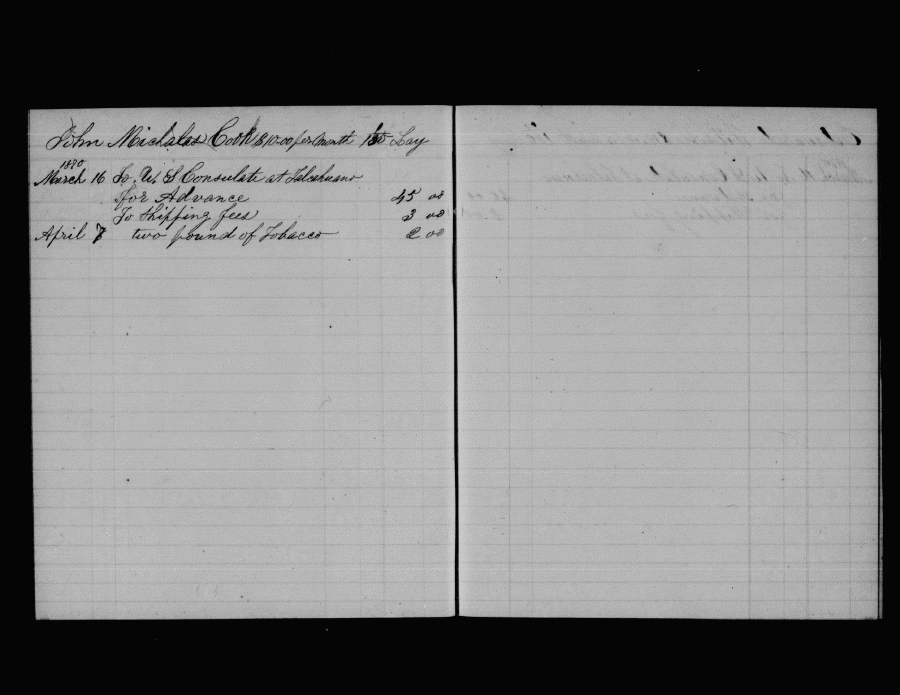 John Nichalas Cook $10-00 per Month 150 Lay
1890
March 16 To, U, S Consulate at Talcahuano
for Advance 45 00
To Shipping fees 3 00
April 7 two pound of Tobacco 2 00